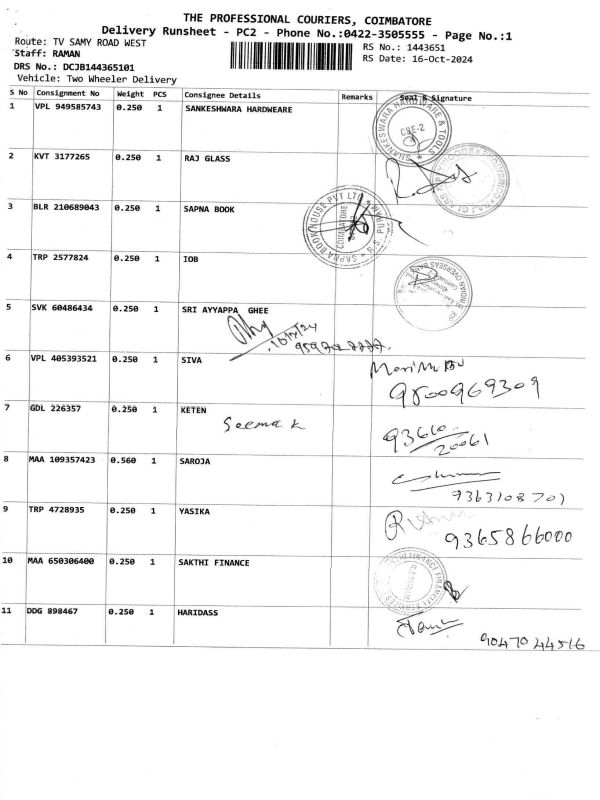 THE PROFESSIONAL COURIERS, COIMBATORE
Delivery Runsheet - PC2 - Phone No.:0422-3505555 - Page No.:1
Route: TV SAMY ROAD WEST
RS No.: 1443651
Staff: RAMAN
RS Date: 16-Oct-2024
DRS No.: DCJB144365101
Vehicle: Two Wheeler Delivery
S No Consignment No Weight PCS Consignee Details Remarks Seal & Signature
1 VPL 949585743 0.250 1 SANKESHWARA HARDWEARE
SHANKESWARA HARDWARE & TOOLS
CBE-2
2 KVT 3177265 0.250 1 RAJ GLASS
3 BLR 210689043 0.250 1 SAPNA BOOK
SAPNA BOOK HOUSE PVT LTD
R.S. PURAM
COIMBATORE
4 TRP 2577824 0.250 1 IOB
5 SVK 60486434 0.250 1 SRI AYYAPPA GHEE
6 VPL 405393521 0.250 1 SIVA
9500969309
7 GDL 226357 0.250 1 KETEN
Seema k
93610
20061
8 MAA 109357423 0.560 1 SAROJA
9363108701
9 TRP 4728935 0.250 1 YASIKA
9365866000
10 MAA 650306400 0.250 1 SAKTHI FINANCE
11 DDG 898467 0.250 1 HARIDASS
9047044516